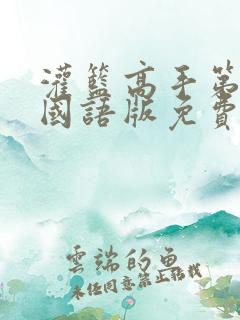 灌籃高手第
國語版免費
雲端的魚
未經同意禁止轉載